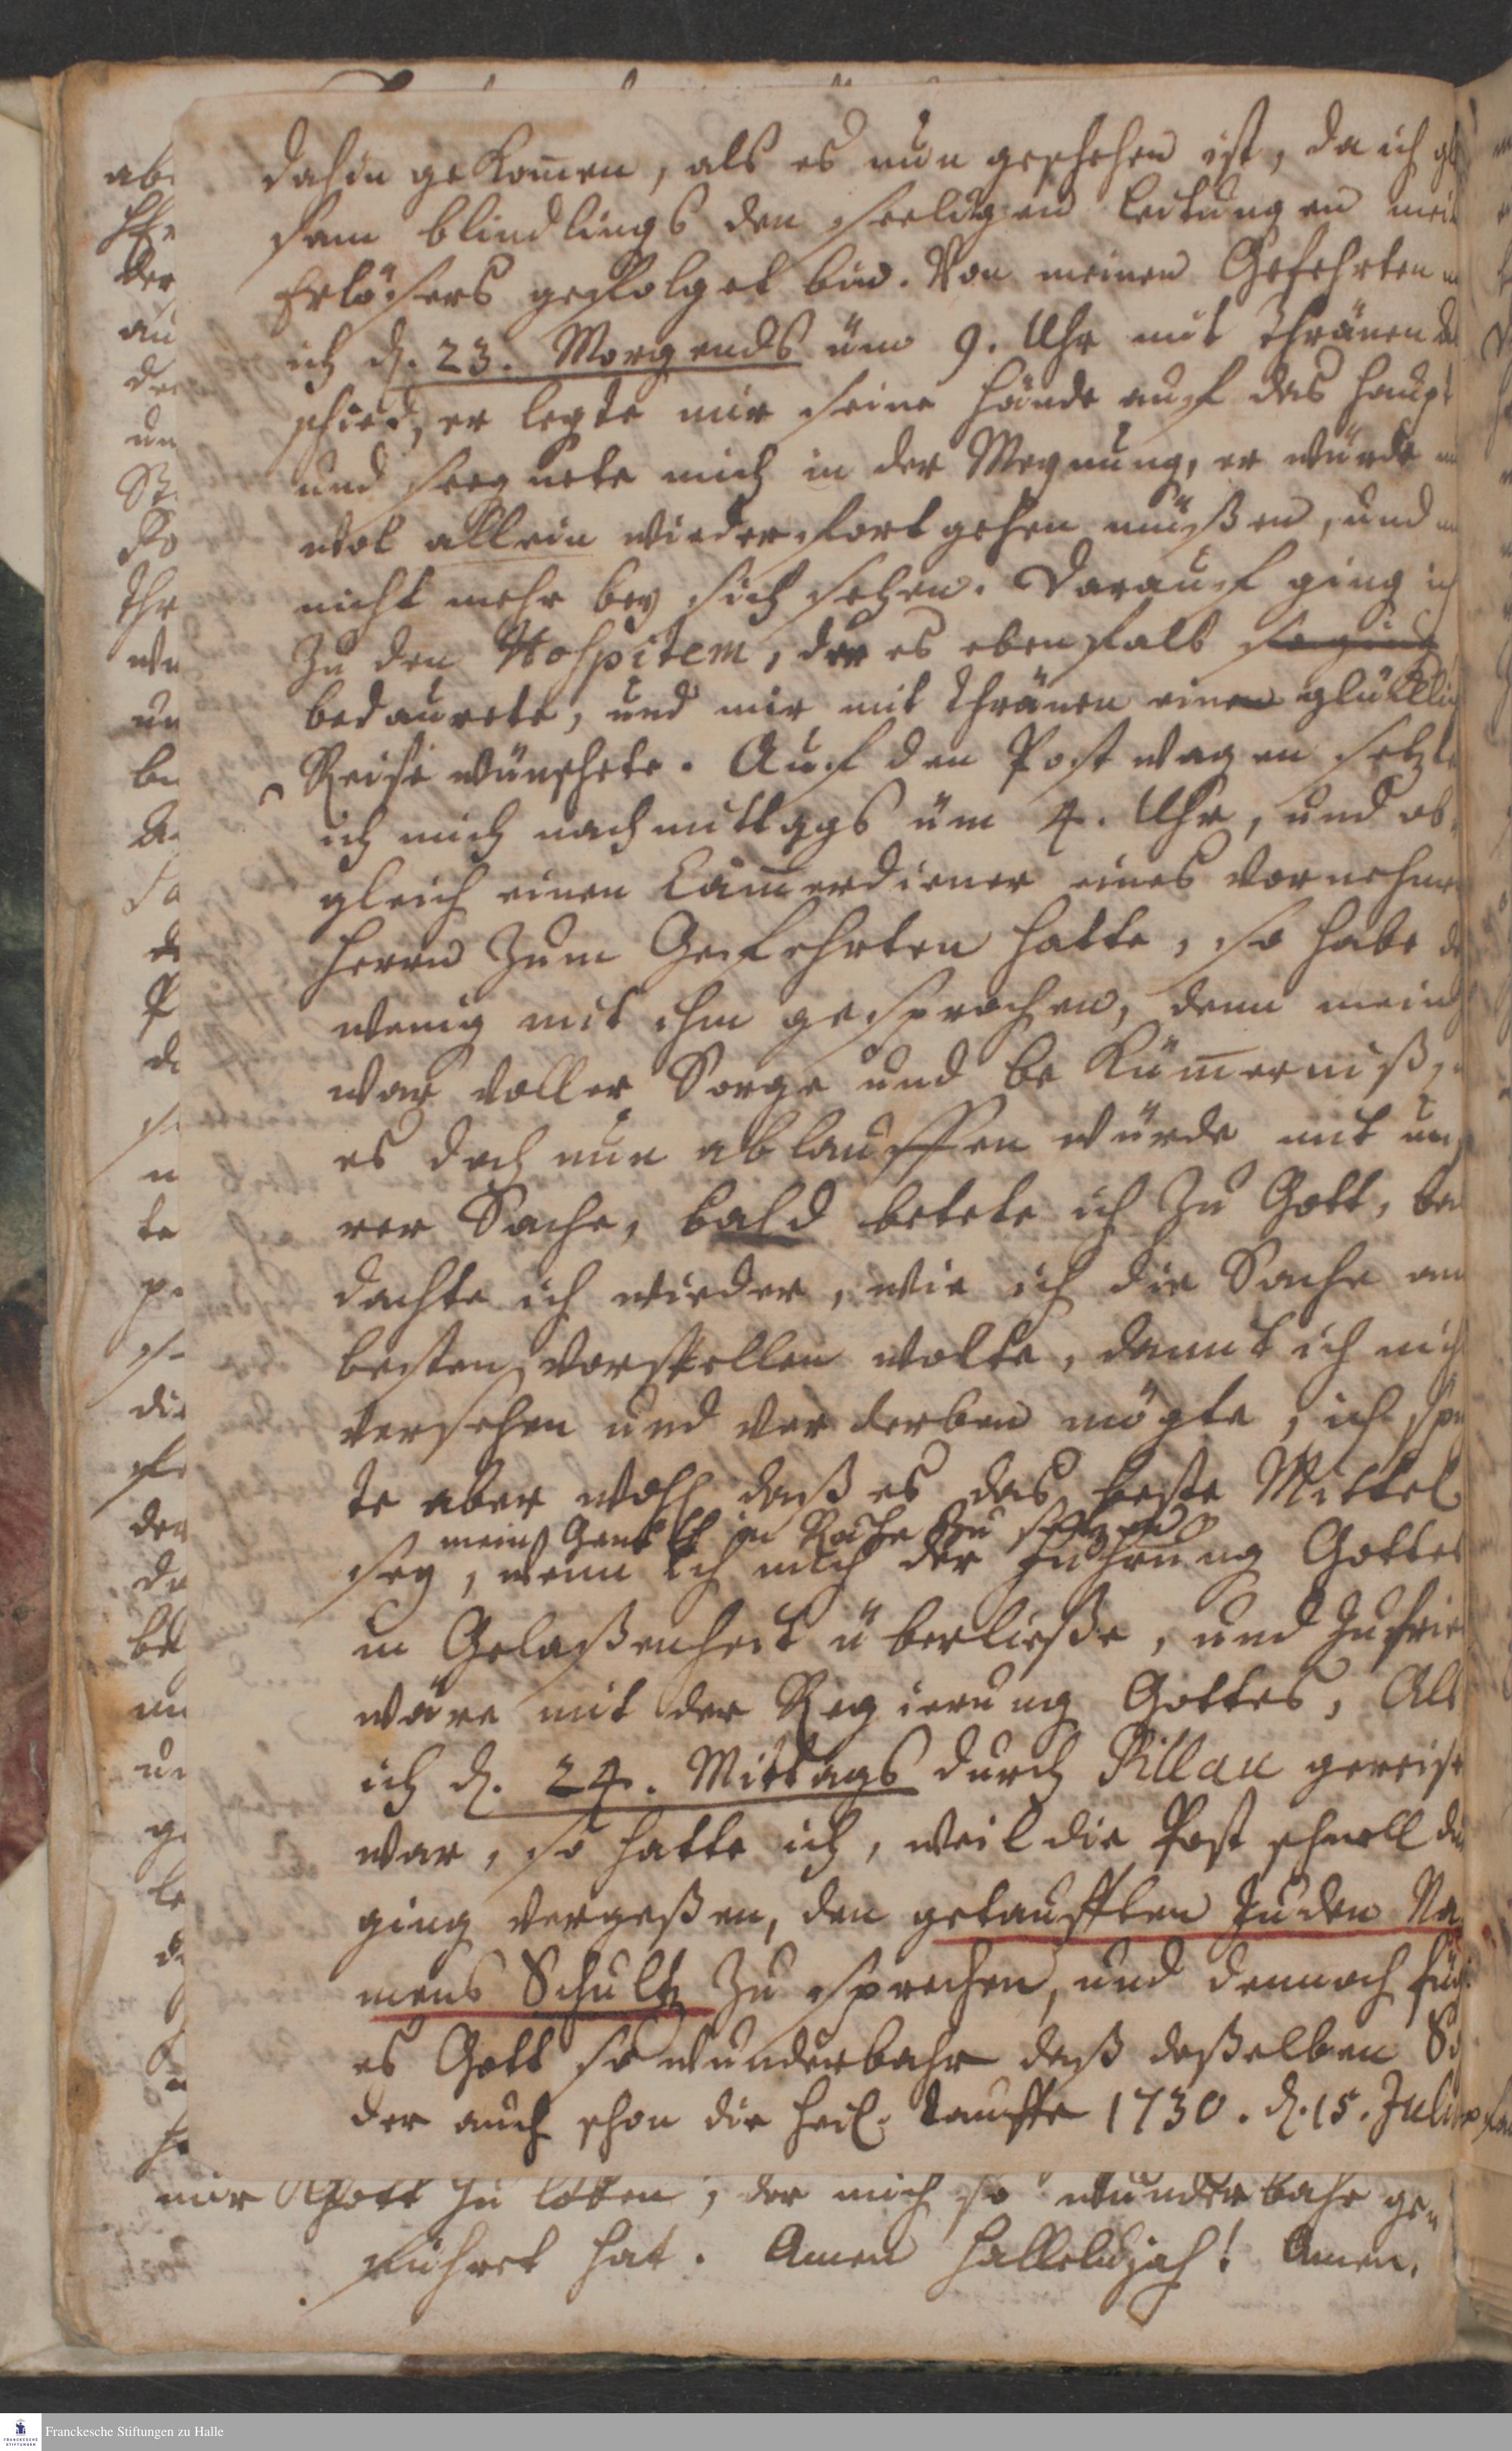 dahin gekom̅en, als es nun geschehen ist, da ich
sam blindlings den seeligen Leitungen mei
Erlösers gefolget bin. Von meinen Gefehrten
ich d. 23. Morgends üm 9. Uhr mit Thränen
schied, er legte mir seine Hände auf das Haupt
und seegnete mich in der Meynung, er würde
wol allein wieder fortgehen müßen, und
nicht mehr bey sich sehen. Darauf ging ich
zu den Hospitem, der es ebenfals
bedaurete, und mir mit Thränen eine glükli
Reise wünschete. Auf den Postwagen setzte
ich mich nachmittags üm 4. Uhr, und ob
gleich einen Cam̅erdiener eines vornehme
Herrn zum Gefehrten hatte, so habe
wenig mit ihm gesprochen, denn mein
war voller Sorge und beküm̅erniß,
es doch nun ablauffen würde mit un
rer Sache, bald betete ich zu Gott, ba
dachte ich wieder, wie ich die Sache am
besten vorstellen wolte, damit ich nich
versehen und verderben mögte, ich spü
te aber wohl daß es das beste Mittel
mein Gemüth in Ruhe zu setzen
sey, wenn ich mich der Führung Gottes
in Gelaßenheit überließe, und zufrie
wäre mit der Regierung Gottes, Als
ich d. 24. Mittags durch Pillau gereist
war, so hatte ich, weil die Post schnell du
ging vergeßen, den getaufften Juden Na
mens Schultz zu sprechen, und dennoch füg
es Gott so wunderbahr daß deßelben
der auch schon die heil. Tauffe 1730. d. 15. Juli
mir Gott zu loben, der mich so wunderbahr ge
führet hat. Amen Hallelujah! Amen.
ab
der
au
de
un
St
Ko
Thr
un
be
da
te
die
der
da
be
un
ge
le
Franckesche Stiftungen zu Halle
FRANCKESCHE STIFTUNGEN